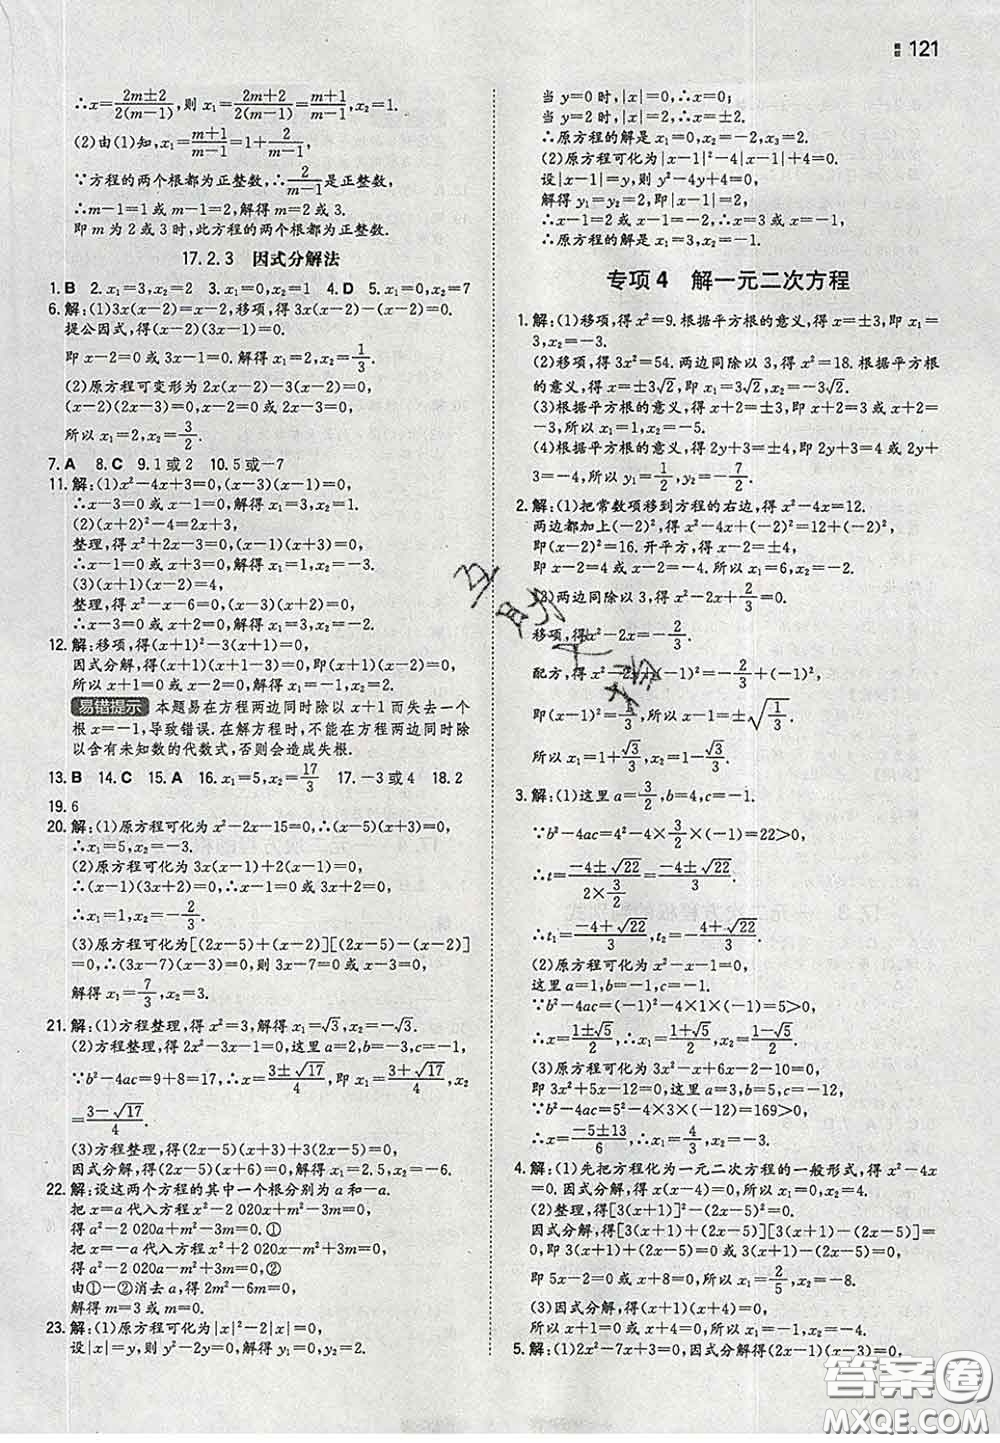 121
∴x=(2m±2)/(2(m-1)),则 x₁=(2m+2)/(2(m-1))=(m+1)/(m-1).
(2)由(1)知,x₁=(m+1)/(m-1)=1+2/(m-1),
∵方程的两个根都为正整数,∴2/(m-1)是正整数,
∴m-1=1 或 m-1=2,解得 m=2 或 3.
即 m 为 2 或 3 时,此方程的两个根都为正整数.
17.2.3 因式分解法
1.B 2.x₁=3,x₂=2 3.x₁=0,x₂=1 4.D 5.x₁=0,x₂=7
6.解:(1)3x(x-2)=x-2,移项,得 3x(x-2)-(x-2)=0.
提公因式,得(x-2)(3x-1)=0.
即 x-2=0 或 3x-1=0.解得 x₁=2,x₂=1/3.
(2)原方程可变形为 2x(x-2)-3(x-2)=0,
(x-2)(2x-3)=0,即 x-2=0 或 2x-3=0,
所以 x₁=2,x₂=3/2.
7.A 8.C 9.1 或 2 10.5 或-7
11.解:(1)x²-4x+3=0,(x-3)(x-1)=0,
∴x-3=0 或 x-1=0,解得 x₁=3,x₂=1.
(2)(x+2)²-4=2x+3,
整理,得 x²+2x-3=0,(x-1)(x+3)=0,
∴x-1=0 或 x+3=0,解得 x₁=1,x₂=-3.
(3)(x+1)(x-2)=4,
整理,得 x²-x-6=0,(x-3)(x+2)=0,
∴x-3=0 或 x+2=0,解得 x₁=3,x₂=-2.
12.解:移项,得(x+1)²-3(x+1)=0,
因式分解,得(x+1)(x+1-3)=0,即(x+1)(x-2)=0,
所以 x+1=0 或 x-2=0,解得 x₁=-1,x₂=2.
易错提示 本题易在方程两边同时除以 x+1 而失去一个
根 x=-1,导致错误.在解方程时,不能在方程两边同时除
以含有未知数的代数式,否则会造成失根.
13.B 14.C 15.A 16.x₁=5,x₂=17/3 17.-3 或 4 18.2
19.6
20.解:(1)原方程可化为 x²-2x-15=0,∴(x-5)(x+3)=0,
∴x₁=5,x₂=-3.
(2)原方程可化为 3x(x-1)+2(x-1)=0,
∴(x-1)(3x+2)=0,∴x-1=0 或 3x+2=0,
∴x₁=1,x₂=-2/3.
(3)原方程可化为[(2x-5)+(x-2)][(2x-5)-(x-2)]
=0,∴(3x-7)(x-3)=0,∴3x-7=0 或 x-3=0,
解得 x₁=7/3,x₂=3.
21.解:(1)方程整理,得 x²=3,解得 x₁=√3,x₂=-√3.
(2)方程整理,得 2x²-3x-1=0,这里 a=2,b=-3,c=-1,
∵b²-4ac=9+8=17,∴x=(3±√17)/4,即 x₁=(3+√17)/4,x₂
=(3-√17)/4.
(3)方程整理,得(2x-5)(x+3)+3(2x-5)=0,
因式分解,得(2x-5)(x+6)=0,解得 x₁=2.5,x₂=-6.
22.解:设这两个方程的其中一个根分别为 a 和-a.
把 x=a 代入方程 x²-2 020x+m²-3m=0,
得 a²-2 020a+m²-3m=0.①
把 x=-a 代入方程 x²+2 020x-m²+3m=0,
得 a²-2 020a-m²+3m=0,②
由①-②消去 a,得 2m²-6m=0,
解得 m=3 或 m=0.
23.解:(1)原方程可化为|x|²-2|x|=0,
设|x|=y,则 y²-2y=0,解得 y₁=0,y₂=2.
当 y=0 时,|x|=0,∴x=0;
当 y=2 时,|x|=2,∴x=±2.
∴原方程的解是 x₁=0,x₂=-2,x₃=2.
(2)原方程可化为|x-1|²-4|x-1|+4=0.
设|x-1|=y,则 y²-4y+4=0,
解得 y₁=y₂=2,即|x-1|=2,
∴x-1=2 或 x-1=-2,∴x=3 或 x=-1.
∴原方程的解是 x₁=3,x₂=-1.
专项 4 解一元二次方程
1.解:(1)移项,得 x²=9.根据平方根的意义,得 x=±3,即 x₁=
3,x₂=-3.
(2)移项,得 3x²=54.两边同除以 3,得 x²=18.根据平方根
的意义,得 x=±3√2,即 x₁=3√2,x₂=-3√2.
(3)根据平方根的意义,得 x+2=±3,即 x+2=3 或 x+2=
-3.所以 x₁=1,x₂=-5.
(4)根据平方根的意义,得 2y+3=±4,即 2y+3=4 或 2y+
3=-4,所以 y₁=1/2,y₂=-7/2.
2.解:(1)把常数项移到方程的右边,得 x²-4x=12.
两边都加上(-2)²,得 x²-4x+(-2)²=12+(-2)²,
即(x-2)²=16.开平方,得 x-2=±4,
即 x-2=4 或 x-2=-4.所以 x₁=6,x₂=-2.
(2)两边同除以 3,得 x²-2x+2/3=0.
移项,得 x²-2x=-2/3.
配方,得 x²-2x+(-1)²=-2/3+(-1)²,
即(x-1)²=1/3,所以 x-1=±√(1/3),
所以 x₁=1+√3/3,x₂=1-√3/3.
3.解:(1)这里 a=3/2,b=4,c=-1,
∵b²-4ac=4²-4×3/2×(-1)=22>0,
∴t=(-4±√22)/(2×3/2)=(-4±√22)/3.
∴t₁=(-4+√22)/3,t₂=(-4-√22)/3.
(2)原方程可化为 x²-x-1=0,
这里 a=1,b=-1,c=-1.
∵b²-4ac=(-1)²-4×1×(-1)=5>0,
∴x=(1±√5)/2,∴x₁=(1+√5)/2,x₂=(1-√5)/2.
(3)原方程可化为 3x²-x+6x-2-10=0,
即 3x²+5x-12=0,这里 a=3,b=5,c=-12,
∵b²-4ac=5²-4×3×(-12)=169>0,
∴x=(-5±13)/6,∴x₁=4/3,x₂=-3.
4.解:(1)先把方程化为一元二次方程的一般形式,得 x²-4x
=0.因式分解,得 x(x-4)=0,所以 x₁=0,x₂=4.
(2)整理,得[3(x+1)]²-(2x-5)²=0.
因式分解,得[3(x+1)+(2x-5)][3(x+1)-(2x-5)]
=0,即[3(x+1)+(2x-5)]=0 或[3(x+1)-(2x-5)]=0,
即 5x-2=0 或 x+8=0,所以 x₁=2/5,x₂=-8.
(3)因式分解,得(x+3)(x+4)=0,
所以 x+3=0 或 x+4=0,所以 x₁=-3,x₂=-4.
5.解:(1)2x²-7x+3=0,因式分解得(2x-1)(x-3)=0,
答案圈
MXQE.COM